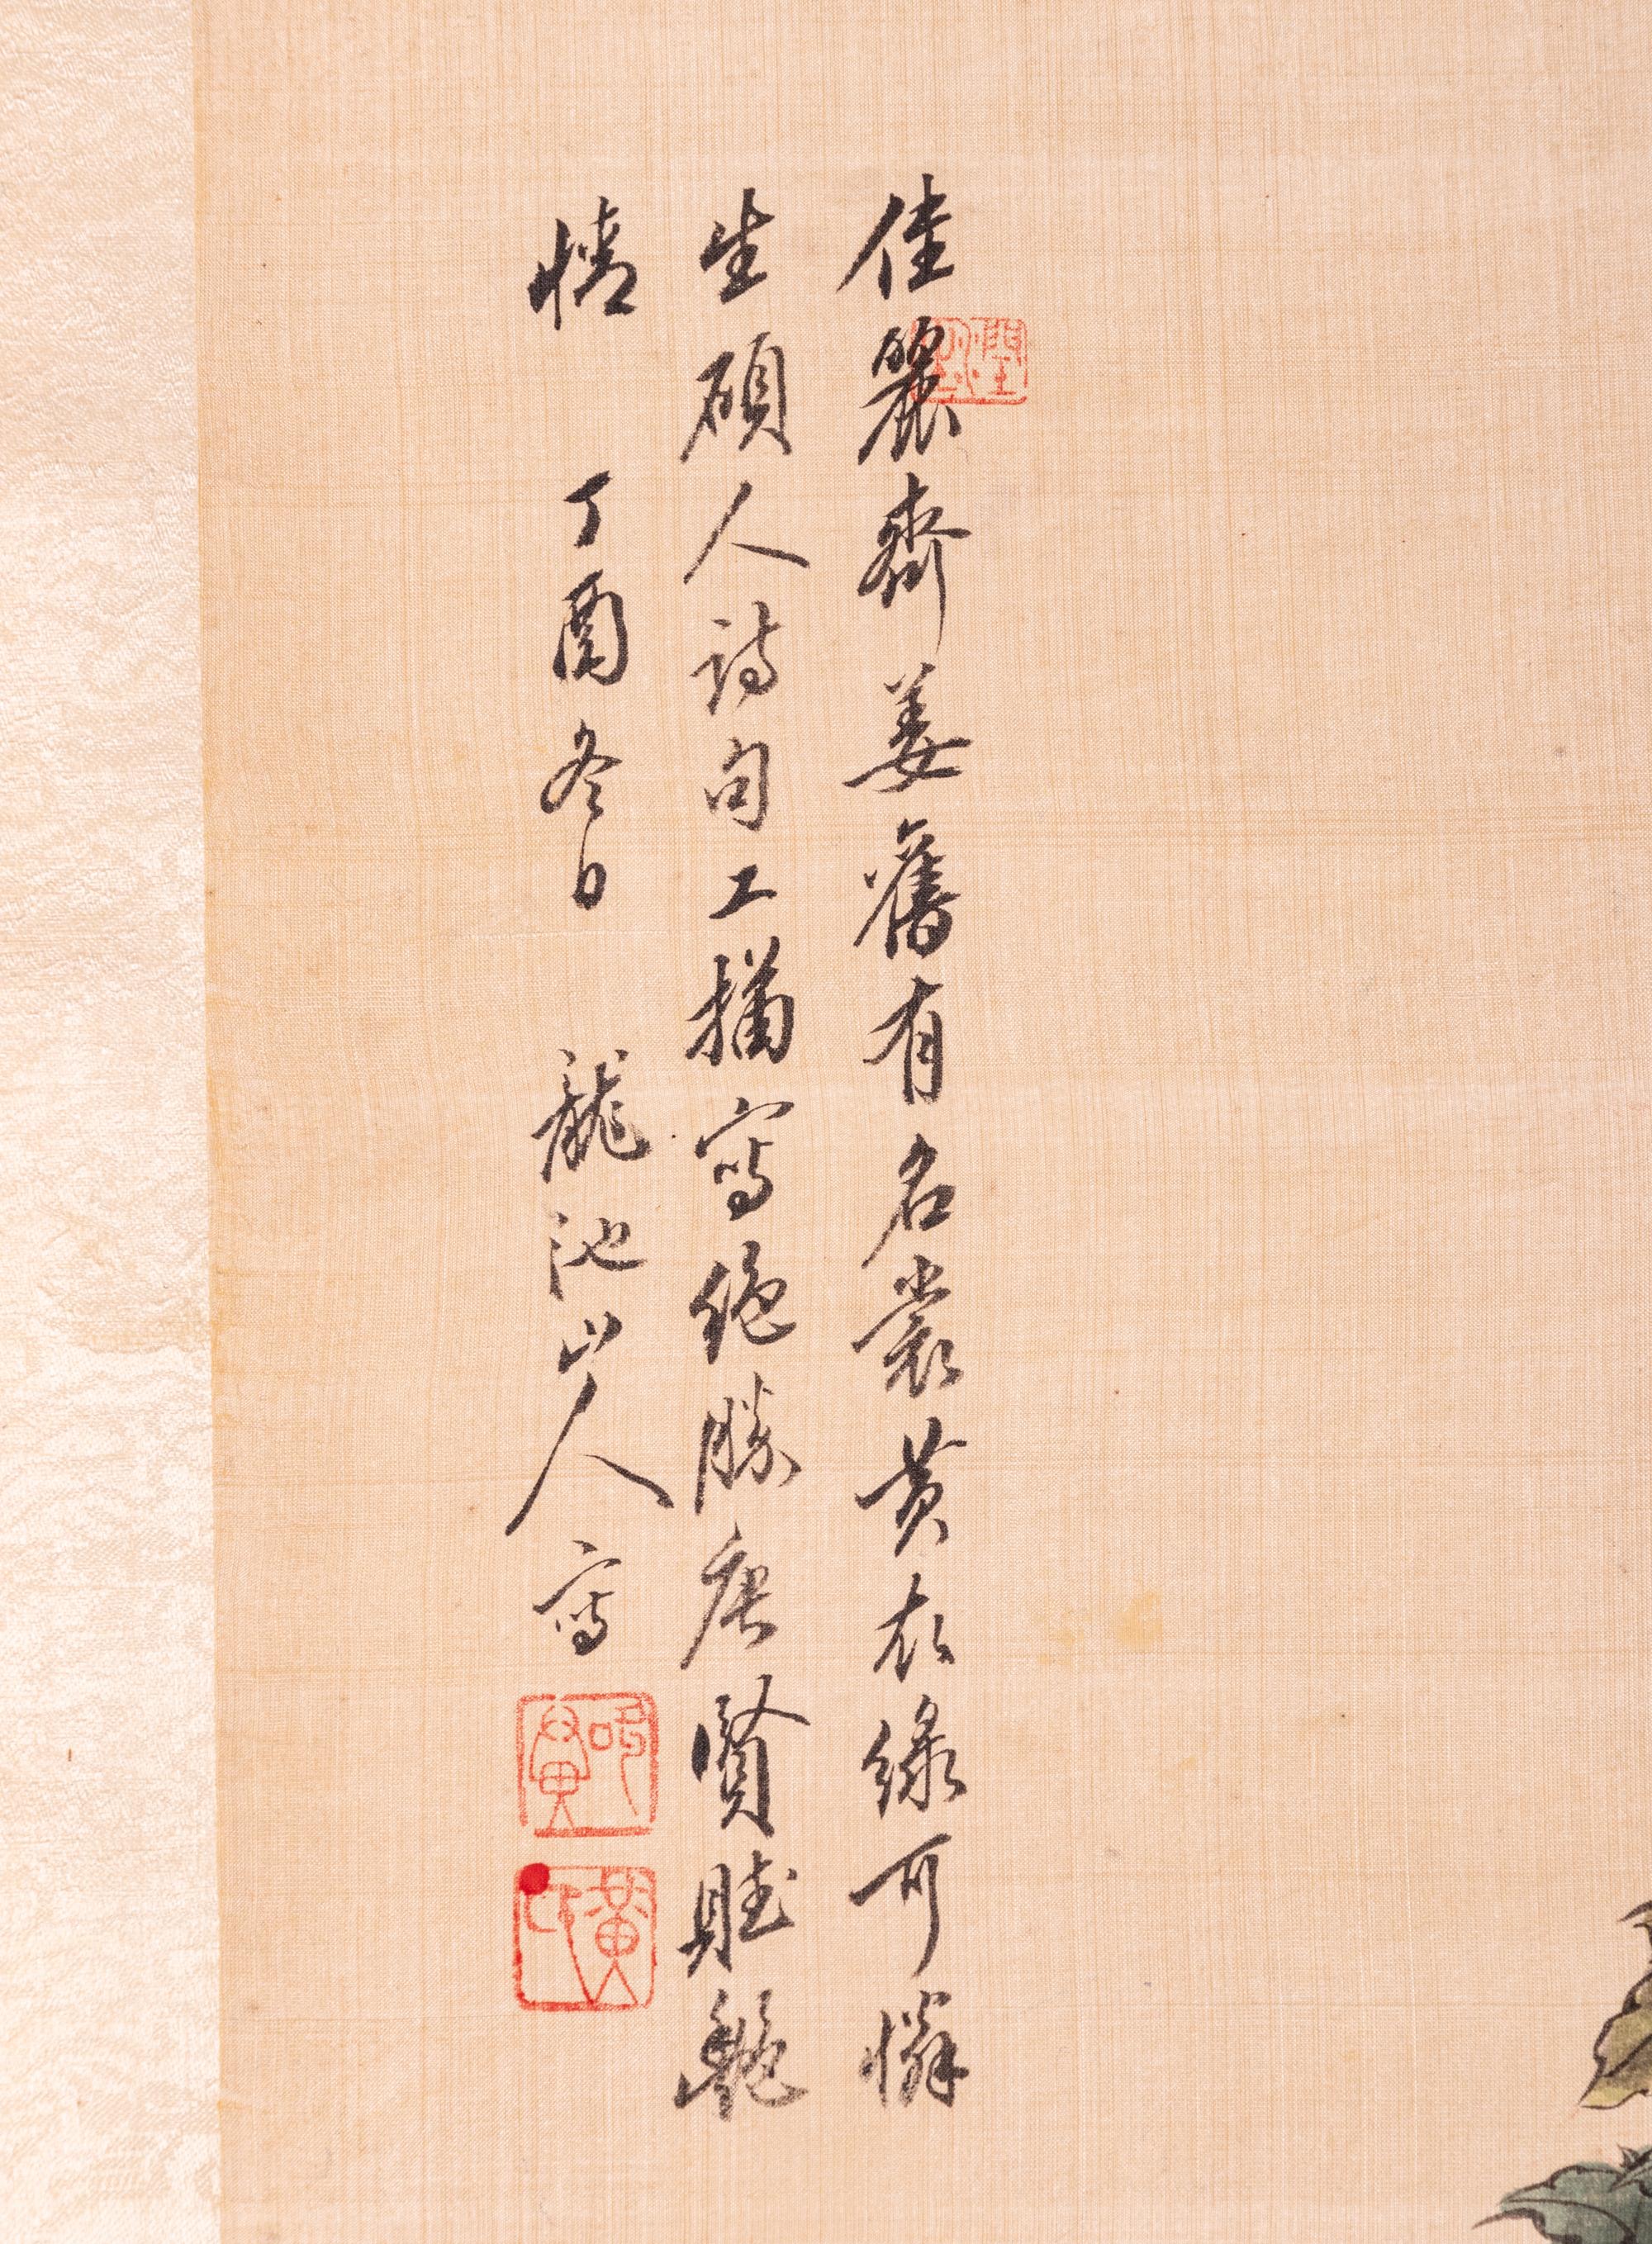 佳麗齊姜舊有名裳黃衣綠可憐
生碩人詩句工描寫絕勝唐賢賦艷
情 丁酉冬日 龍池山人寫
黃